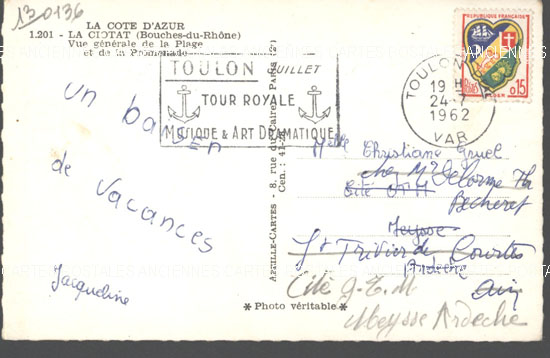 130136
LA COTE D'AZUR
1.201 - LA CIOTAT (Bouches-du-Rhône)
Vue générale de la Plage
et de la Promenade
TOULON JUILLET
TOUR ROYALE
MUSIQUE & ART DRAMATIQUE
REPUBLIQUE FRANÇAISE
0,15
ALGER
TOULON
19 H
24-7
1962
VAR
un baiser
de vacances
Jacqueline
APTILLE-CARTES - 8, rue du Caire, Paris (2e)
Cen. : 41-
Melle Christiane Gruel
chez Mr Delorme
Cité
Becheret
Meysse
St Trivier de Courtes
Ardèche
Ain
Cité G.E.M
Meysse Ardeche
*Photo véritable*
CARTES POSTALES ANCIENNES